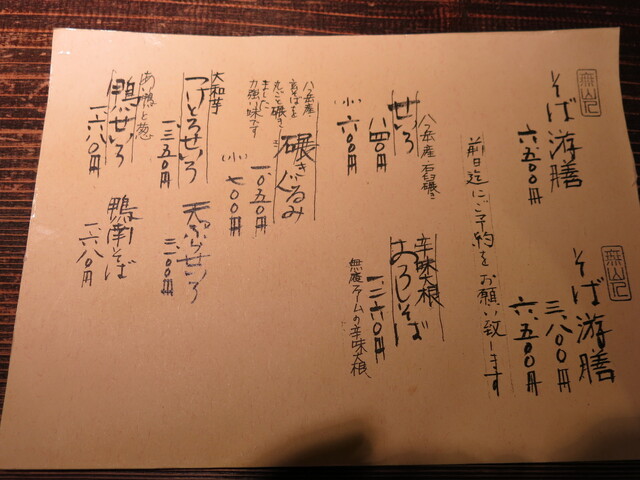 そば游膳
六、五〇〇円
そば游膳
三、八〇〇円
六、五〇〇円
前日迄にご予約をお願い致します
八ヶ岳産 石臼碾き
せいろ
八四〇円
(小) 六〇〇円
辛味大根
おろしそば
一、二六〇円
無農ファームの辛味大根
八ヶ岳産
玄そばを
丸ごと碾き
ました
力強い味です
碾きぐるみ
一、〇五〇円
(小) 七〇〇円
大和芋
つけとろせいろ
一、三五〇円
天ぷらせいろ
三、二〇〇円
あい鴨と葱
鴨せいろ
一、六八〇円
鴨南そば
一、六八〇円